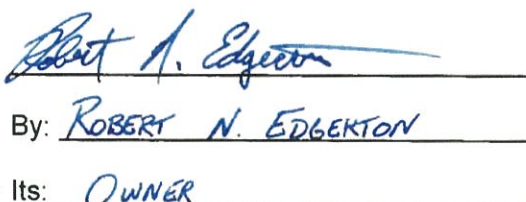 Robert N. Edgerton
By: ROBERT N. EDGERTON
Its: OWNER